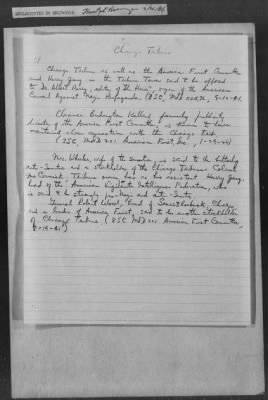 DECLASSIFIED ON MICROFILM
Chicago Tribune
Chicago Tribune as well as the America First Committee
and Harry Jung in the Tribune Tower said to be opposed
to Dr. Albert Parry, editor of The Hour, organ of the American
Council Against Nazi Propaganda. (BSC,
Clarence Budington Kelland formerly publicity
director of the America First Committee is known to have
maintained close connection with the Chicago Trib.
(BSC, America First, Inc.,
Mrs. Wheeler, wife of the senator, is said to be bitterly
anti-Semitic and a stockholder of the Chicago Tribune. Colonel
McCormick Tribune owner has as his assistant Harry Jung,
head of the American Vigilante Intelligence Federation, who
is said to be strongly pro-Nazi and anti-Semitic.
General Robert Wood, head of Sears & Roebuck, Chicago
and a leader of America First, said to be another stockholder
of Chicago Tribune. (BSC America First Committee,